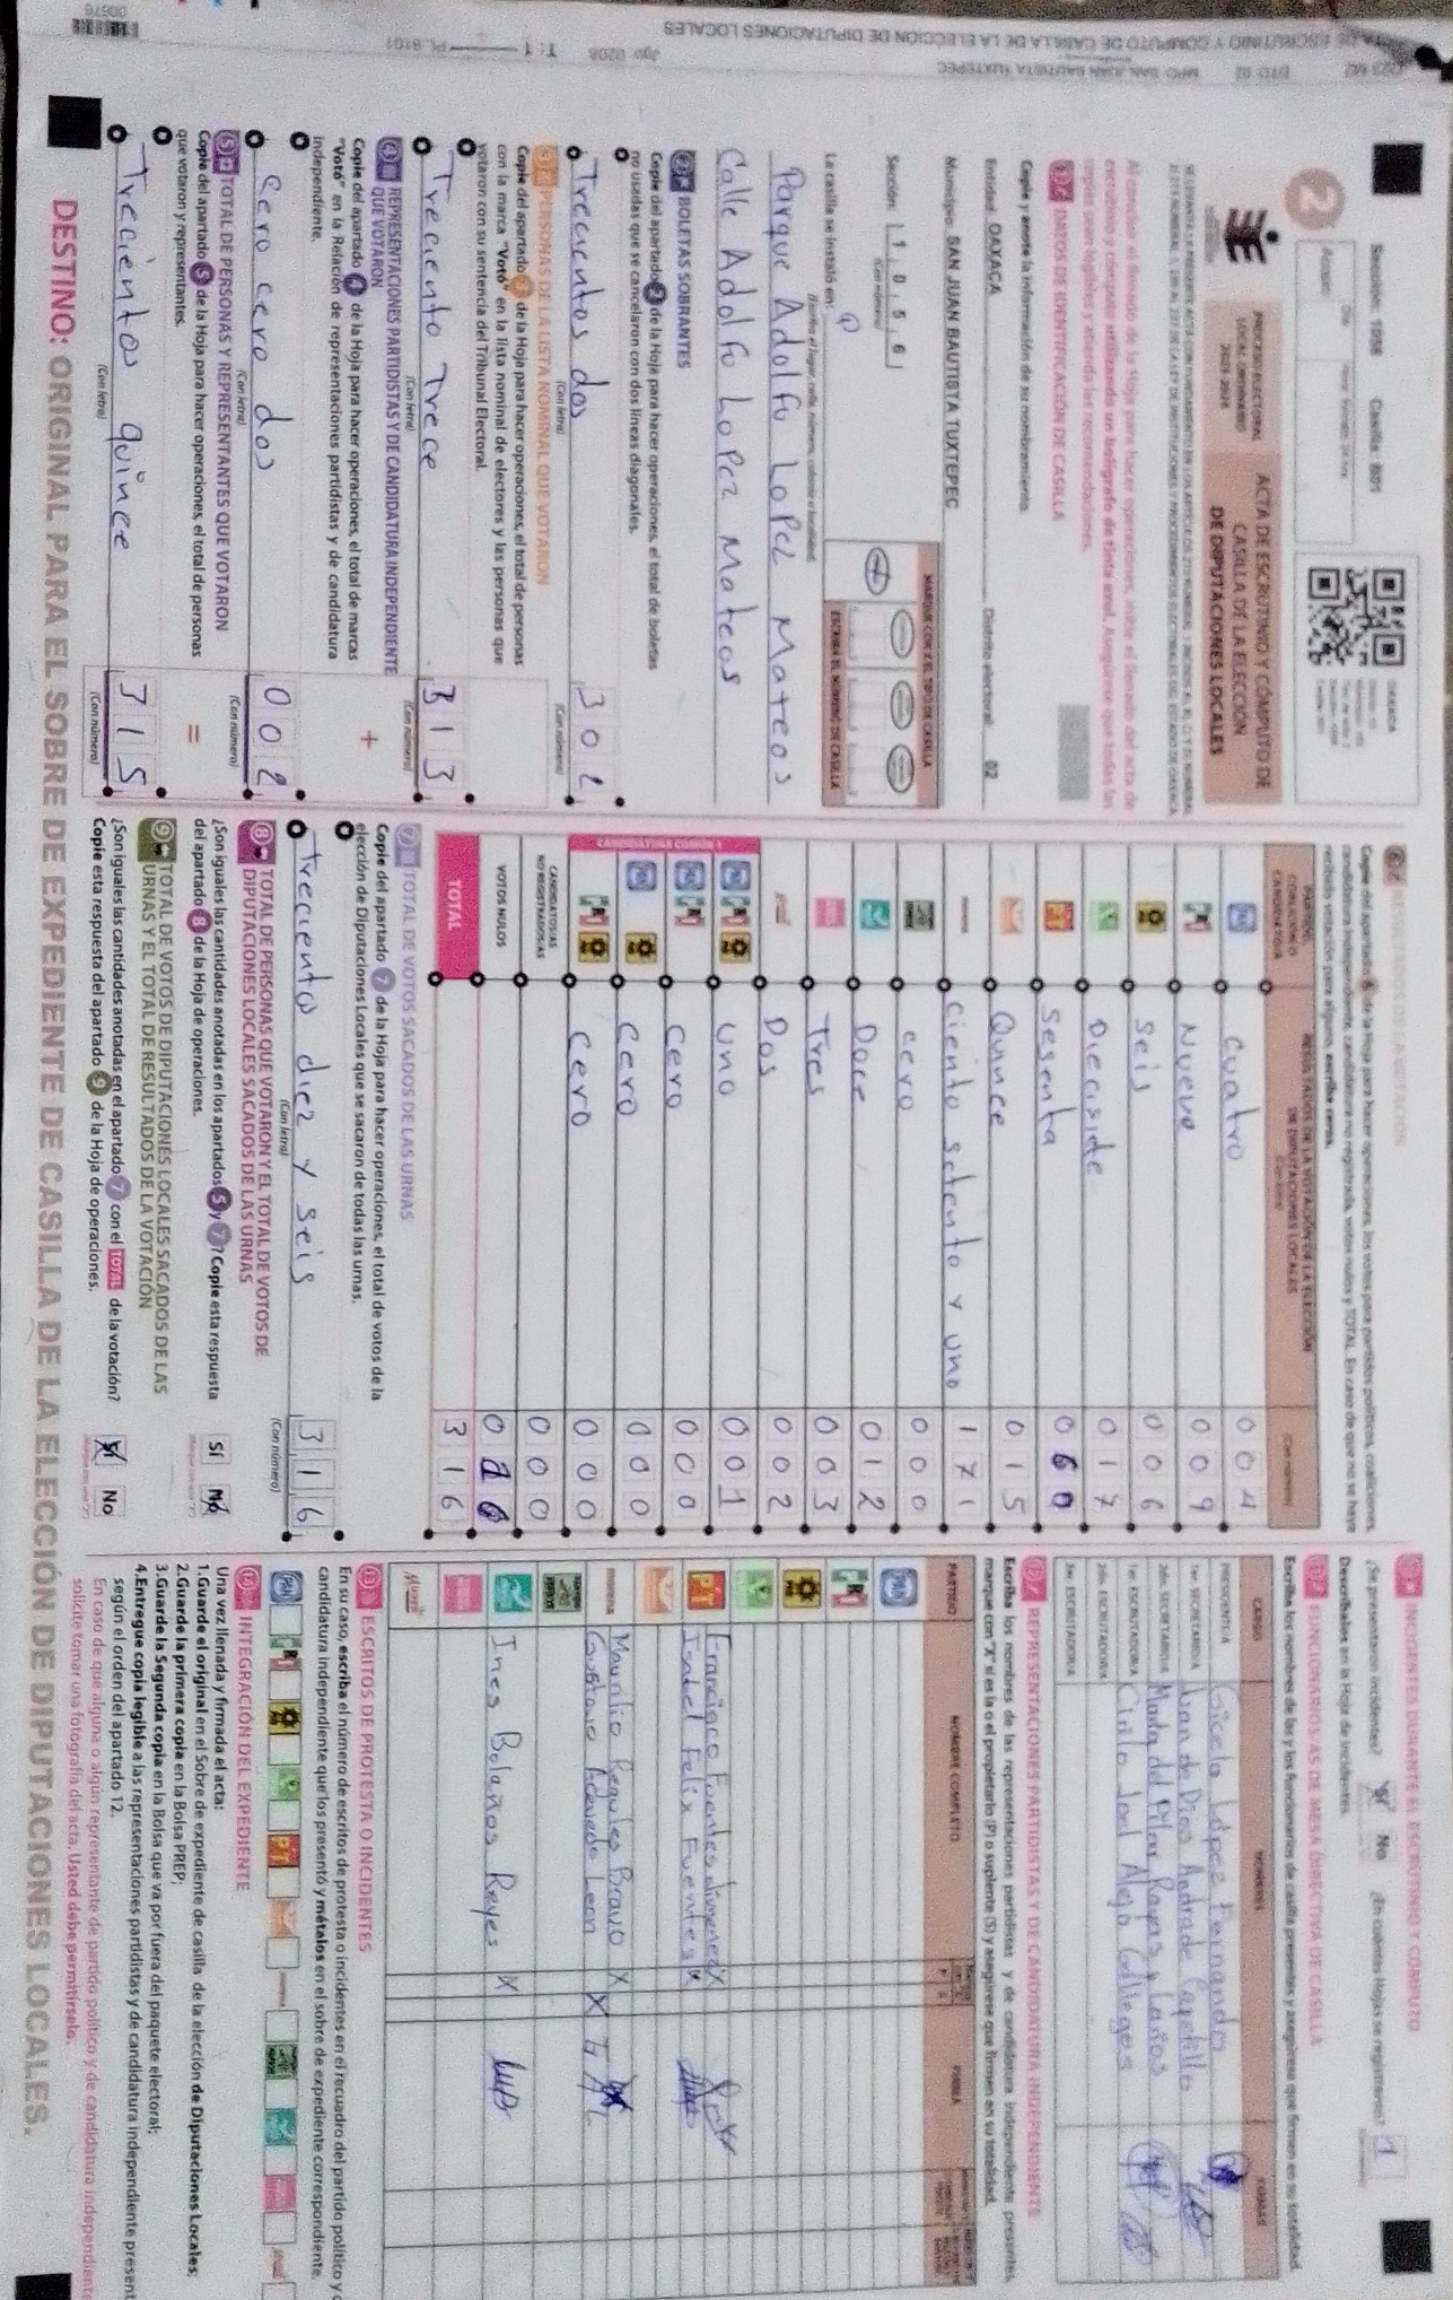 Sección: 1056 Casilla: B01
2
PROCESO ELECTORAL
LOCAL ORDINARIO
ACTA DE ESCRUTINIO Y CÓMPUTO DE
CASILLA DE LA ELECCIÓN
DE DIPUTACIONES LOCALES
Al concluir el llenado de la Hoja para hacer operaciones, inicie el llenado del acta de
escrutinio y cómputo utilizando un bolígrafo de tinta azul. Asegúrese que todas las
copias sean legibles y atienda las recomendaciones.
1 DATOS DE IDENTIFICACIÓN DE CASILLA
Copie y anote la información de su nombramiento.
Entidad: OAXACA Distrito electoral: 02
Municipio: SAN JUAN BAUTISTA TUXTEPEC
Sección: 1 0 5 6
(Con número)
MARQUE CON X EL TIPO DE CASILLA
ESCRIBA EL NÚMERO DE CASILLA
La casilla se instaló en:
Parque Adolfo Lopez Mateos
Calle Adolfo Lopez Mateos
2 BOLETAS SOBRANTES
Copie del apartado 2 de la Hoja para hacer operaciones, el total de boletas
no usadas que se cancelaron con dos líneas diagonales.
Trecientos dos 302
(Con letra) (Con número)
3 PERSONAS DE LA LISTA NOMINAL QUE VOTARON
Copie del apartado 3 de la Hoja para hacer operaciones, el total de personas
con la marca "Votó" en la lista nominal de electores y las personas que
votaron con su sentencia del Tribunal Electoral.
Treciento Trece 313
(Con letra) (Con número)
4 REPRESENTACIONES PARTIDISTAS Y DE CANDIDATURA INDEPENDIENTE
QUE VOTARON
Copie del apartado 4 de la Hoja para hacer operaciones, el total de marcas
"Votó" en la Relación de representaciones partidistas y de candidatura
independiente.
+
cero cero dos 002
(Con letra) (Con número)
5 TOTAL DE PERSONAS Y REPRESENTANTES QUE VOTARON
Copie del apartado 5 de la Hoja para hacer operaciones, el total de personas
que votaron y representantes.
=
Trecientos quince 315
(Con letra) (Con número)
6 RESULTADOS DE LA VOTACIÓN
Copie del apartado 6 de la Hoja para hacer operaciones, los votos para partidos políticos, coaliciones,
candidatura independiente, candidatura no registrada, votos nulos y TOTAL. En caso de que no se haya
recibido votación para alguno, escriba ceros.
PARTIDO, COALICIÓN O CANDIDATO/A
RESULTADOS DE LA VOTACIÓN DE LA ELECCIÓN
DE DIPUTACIONES LOCALES
(Con letra) (Con número)
PAN cuatro 004
PRI Nueve 009
PRD Seis 006
Diecisiete 017
PT Sesenta 060
Quince 015
morena Ciento setenta y uno 171
cero 000
Doce 012
Tres 003
Dos 002
CANDIDATURA COMÚN 1
PAN PRI PRD uno 001
PAN PRI cero 000
PAN PRD cero 000
PRI PRD cero 000
CANDIDATOS/AS
NO REGISTRADOS/AS 000
VOTOS NULOS
TOTAL 316
7 TOTAL DE VOTOS SACADOS DE LAS URNAS
Copie del apartado 7 de la Hoja para hacer operaciones, el total de votos de la
elección de Diputaciones Locales que se sacaron de todas las urnas.
Trecientos diez y seis 316
(Con letra) (Con número)
8 TOTAL DE PERSONAS QUE VOTARON Y EL TOTAL DE VOTOS DE
DIPUTACIONES LOCALES SACADOS DE LAS URNAS
¿Son iguales las cantidades anotadas en los apartados 5 y 7? Copie esta respuesta
del apartado 8 de la Hoja de operaciones.
Sí No
9 TOTAL DE VOTOS DE DIPUTACIONES LOCALES SACADOS DE LAS
URNAS Y EL TOTAL DE RESULTADOS DE LA VOTACIÓN
¿Son iguales las cantidades anotadas en el apartado 7 con el TOTAL de la votación?
Copie esta respuesta del apartado 9 de la Hoja de operaciones.
Sí No
10 INCIDENTES DURANTE EL ESCRUTINIO Y CÓMPUTO
¿Se presentaron incidentes? Sí No ¿En cuántas Hojas se registraron? 1
Descríbalos en la Hoja de incidentes.
11 FUNCIONARIOS/AS DE MESA DIRECTIVA DE CASILLA
Escriba los nombres de las y los funcionarios de casilla presentes y asegúrese que firmen en su totalidad.
CARGO NOMBRES FIRMAS
PRESIDENTE/A Gicela López Fernandez
1er. SECRETARIO/A Juan de Dios Andrade Capetillo
2do. SECRETARIO/A Marta del Pilar Rayas
1er. ESCRUTADOR/A Cirilo Joel Alejo Gallegos
2do. ESCRUTADOR/A
3er. ESCRUTADOR/A
12 REPRESENTACIONES PARTIDISTAS Y DE CANDIDATURA INDEPENDIENTE
Escriba los nombres de las representaciones partidistas y de candidatura independiente presentes,
marque con "X" si es la o el propietario (P) o suplente (S) y asegúrese que firmen en su totalidad.
PARTIDO NOMBRE COMPLETO FIRMA
PAN
PRI
PRD
PT Francisco Fuentes X
Isabel Felix Fuentes X
morena Maurilio Regules Bravo X
Gustavo Acevedo Leon X
Ines Bolaños Reyes X
13 ESCRITOS DE PROTESTA O INCIDENTES
En su caso, escriba el número de escritos de protesta o incidentes en el recuadro del partido político y
candidatura independiente que los presentó y métalos en el sobre de expediente correspondiente.
PAN PRI PRD PT
14 INTEGRACIÓN DEL EXPEDIENTE
Una vez llenada y firmada el acta:
1.Guarde el original en el Sobre de expediente de casilla de la elección de Diputaciones Locales;
2.Guarde la primera copia en la Bolsa PREP;
3.Guarde la Segunda copia en la Bolsa que va por fuera del paquete electoral;
4.Entregue copia legible a las representaciones partidistas y de candidatura independiente present
según el orden del apartado 12.
En caso de que alguna o algún representante de partido político y de candidatura independiente
solicite tomar una fotografía del acta, Usted debe permitírselo.
DESTINO: ORIGINAL PARA EL SOBRE DE EXPEDIENTE DE CASILLA DE LA ELECCIÓN DE DIPUTACIONES LOCALES.
ACTA DE ESCRUTINIO Y CÓMPUTO DE CASILLA DE LA ELECCIÓN DE DIPUTACIONES LOCALES
DTO. 02 MPO. SAN JUAN BAUTISTA TUXTEPEC